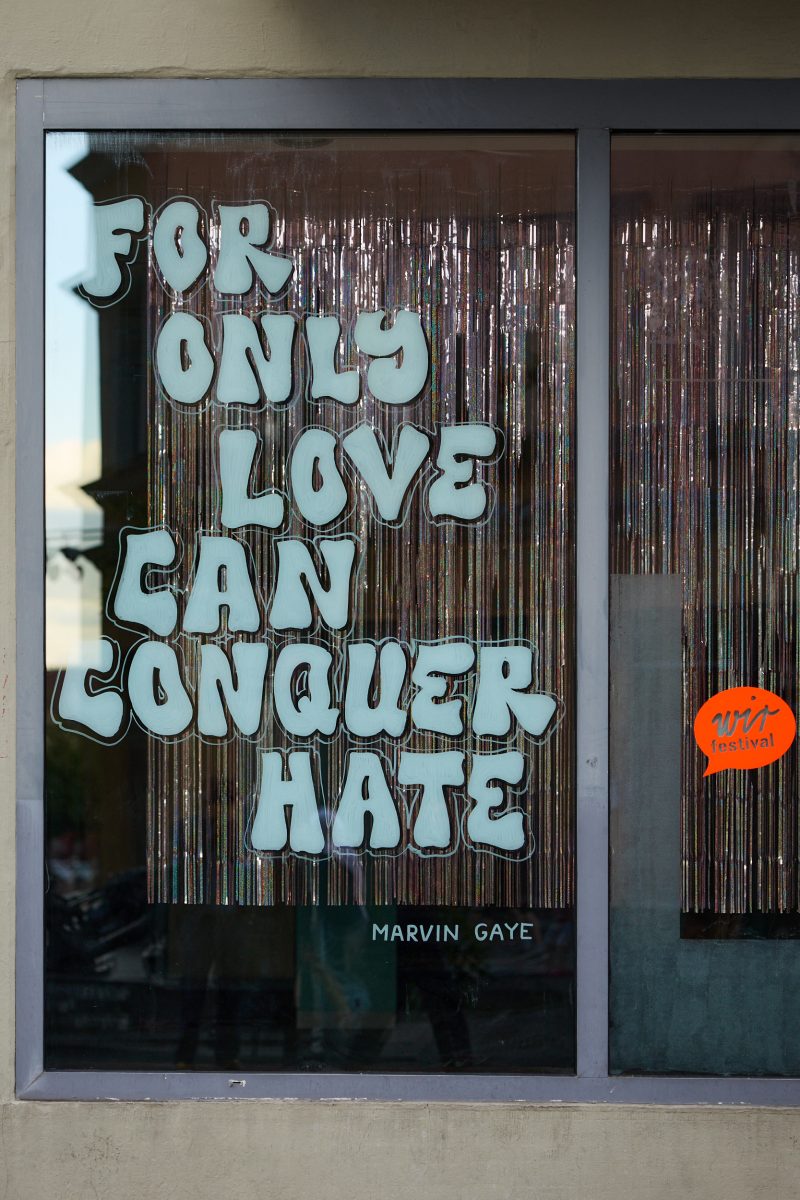 FOR
ONLY
LOVE
CAN
CONQUER
HATE
MARVIN GAYE
wir
festival